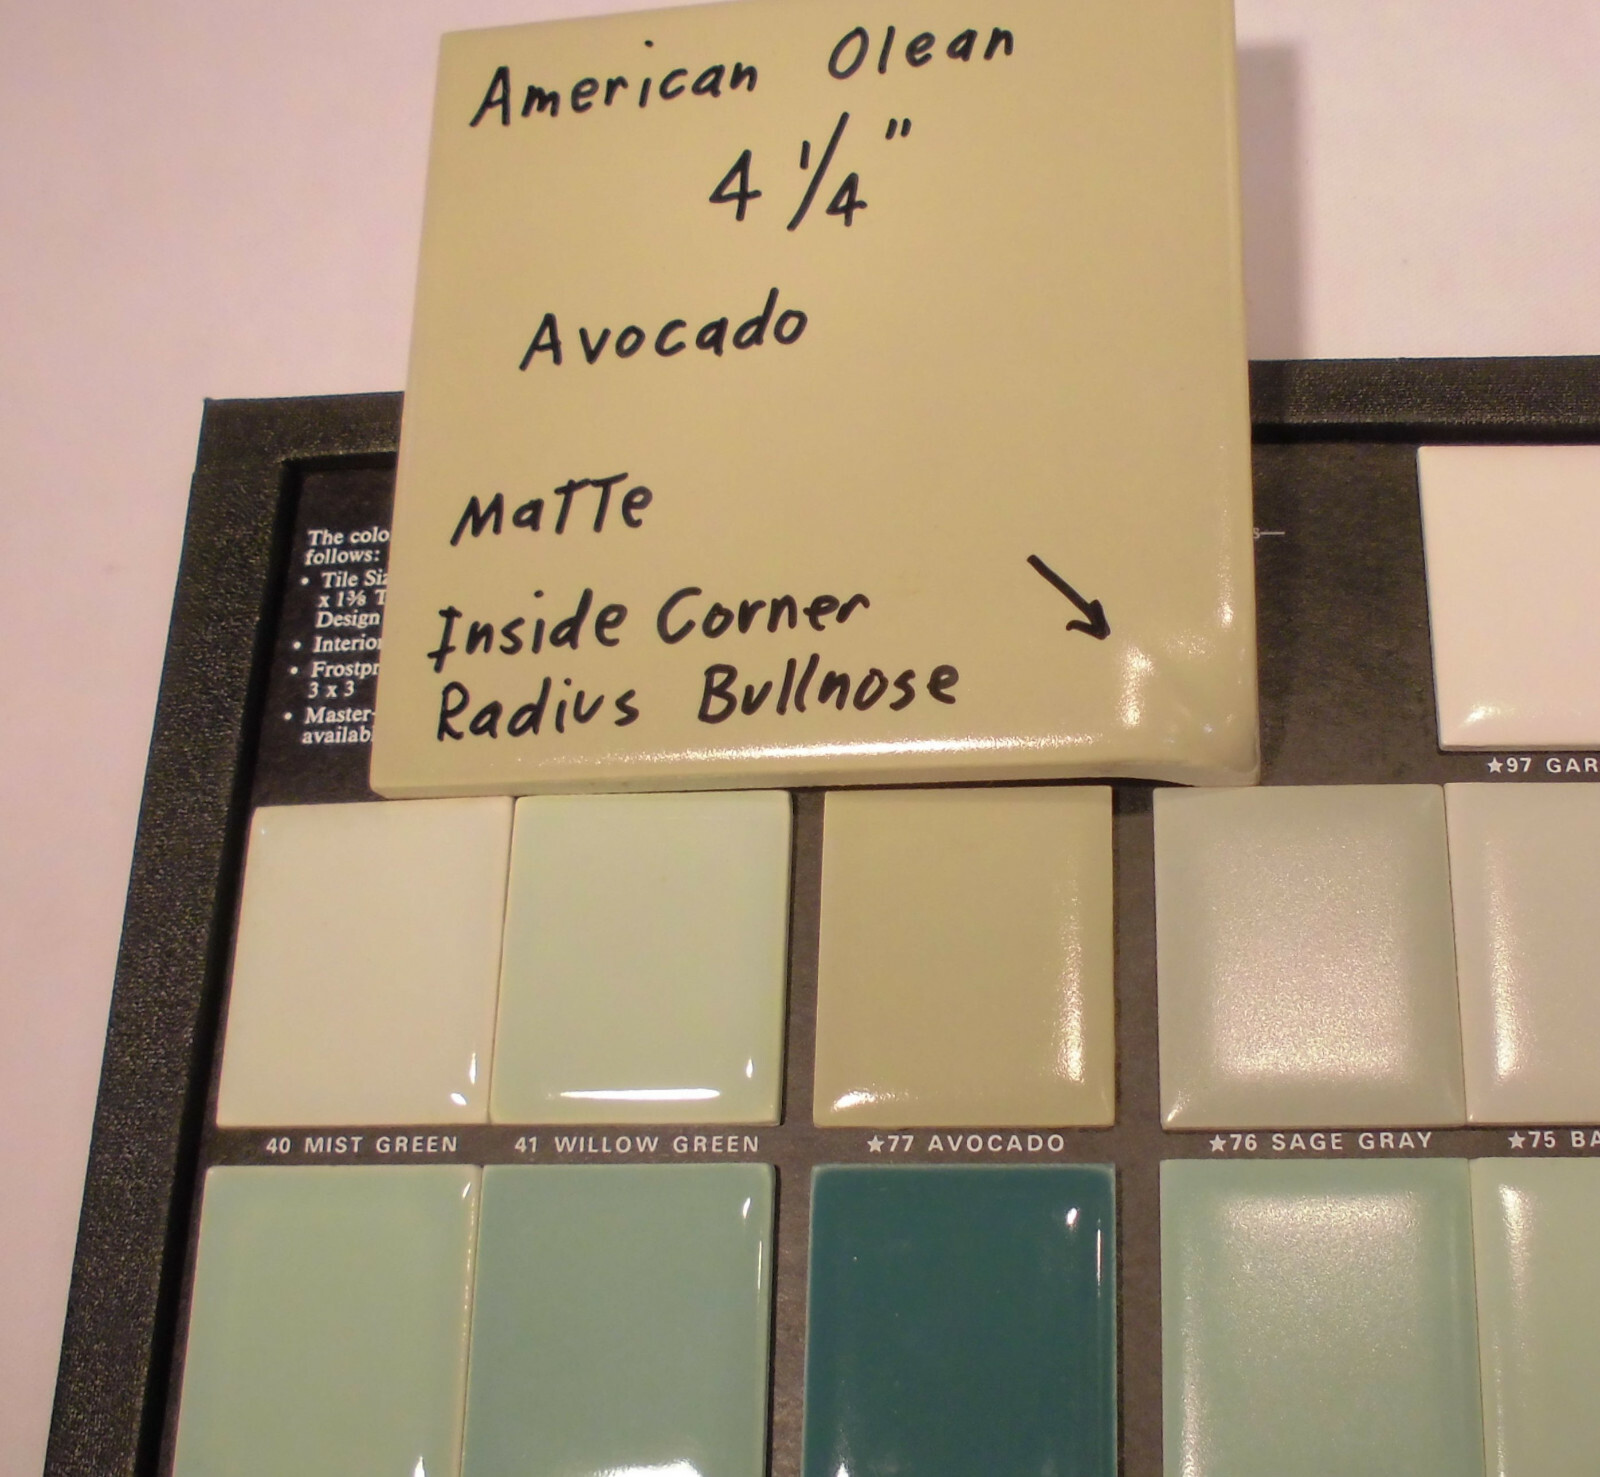 American Olean
4 1/4"
Avocado
Matte
Inside Corner
Radius Bullnose
The
follows:
• Tile
x 1⅜
Design
•
•
3 x 3
• Master-
★97
40 MIST GREEN
41 WILLOW GREEN
★77 AVOCADO
★76 SAGE GRAY
★75